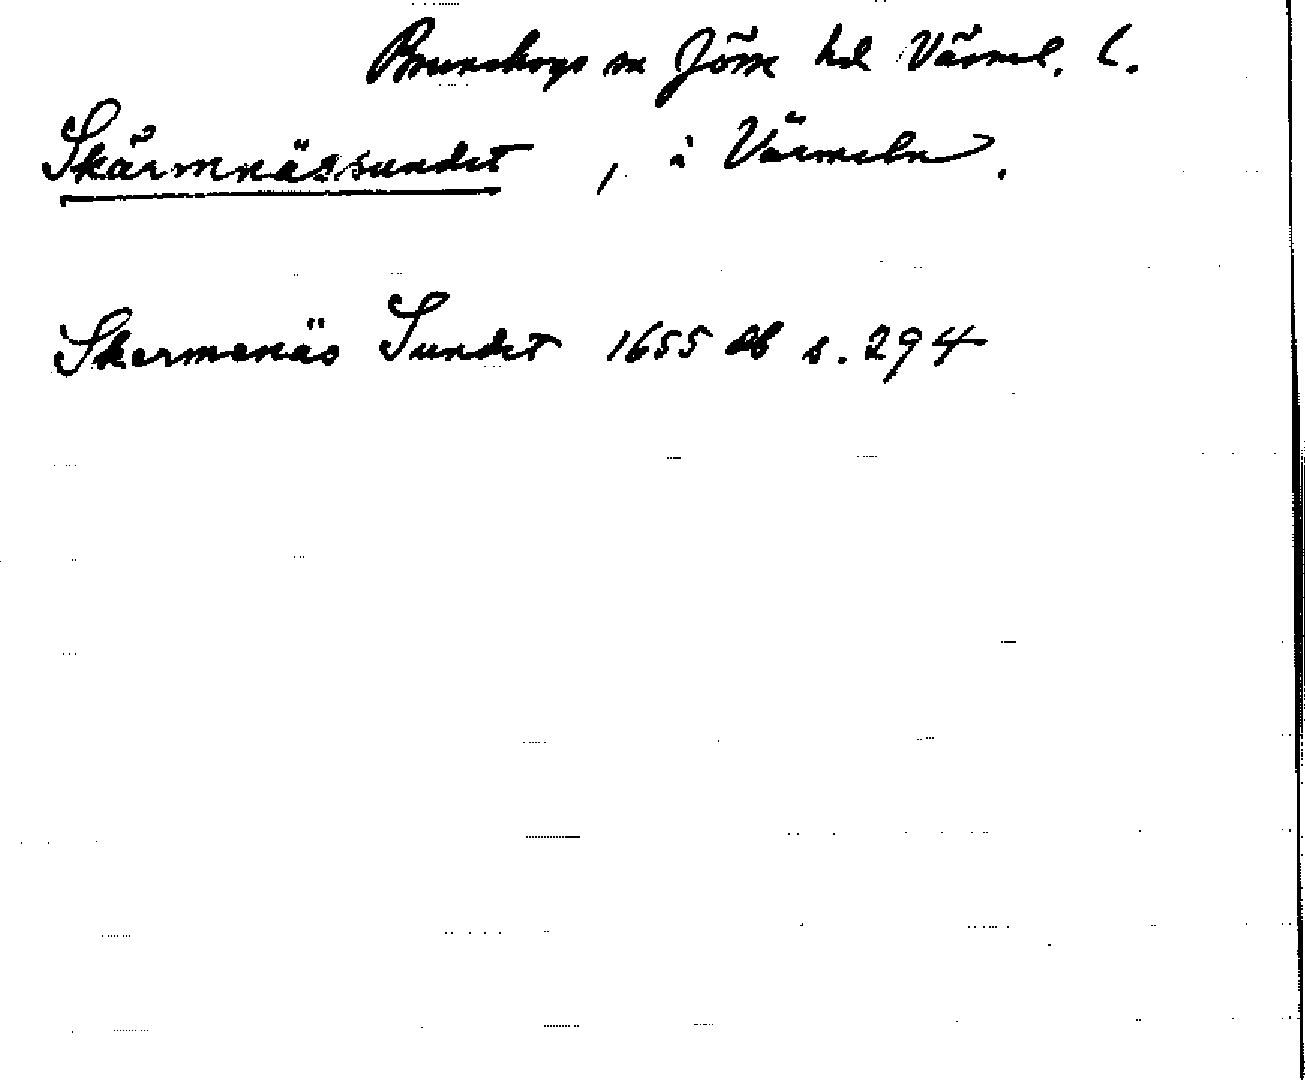 Brunskogs sn Jösse hd Värml. l.
Skärmnässundet , i Värmeln .
Skermenäs Sundet 1655 db s. 294